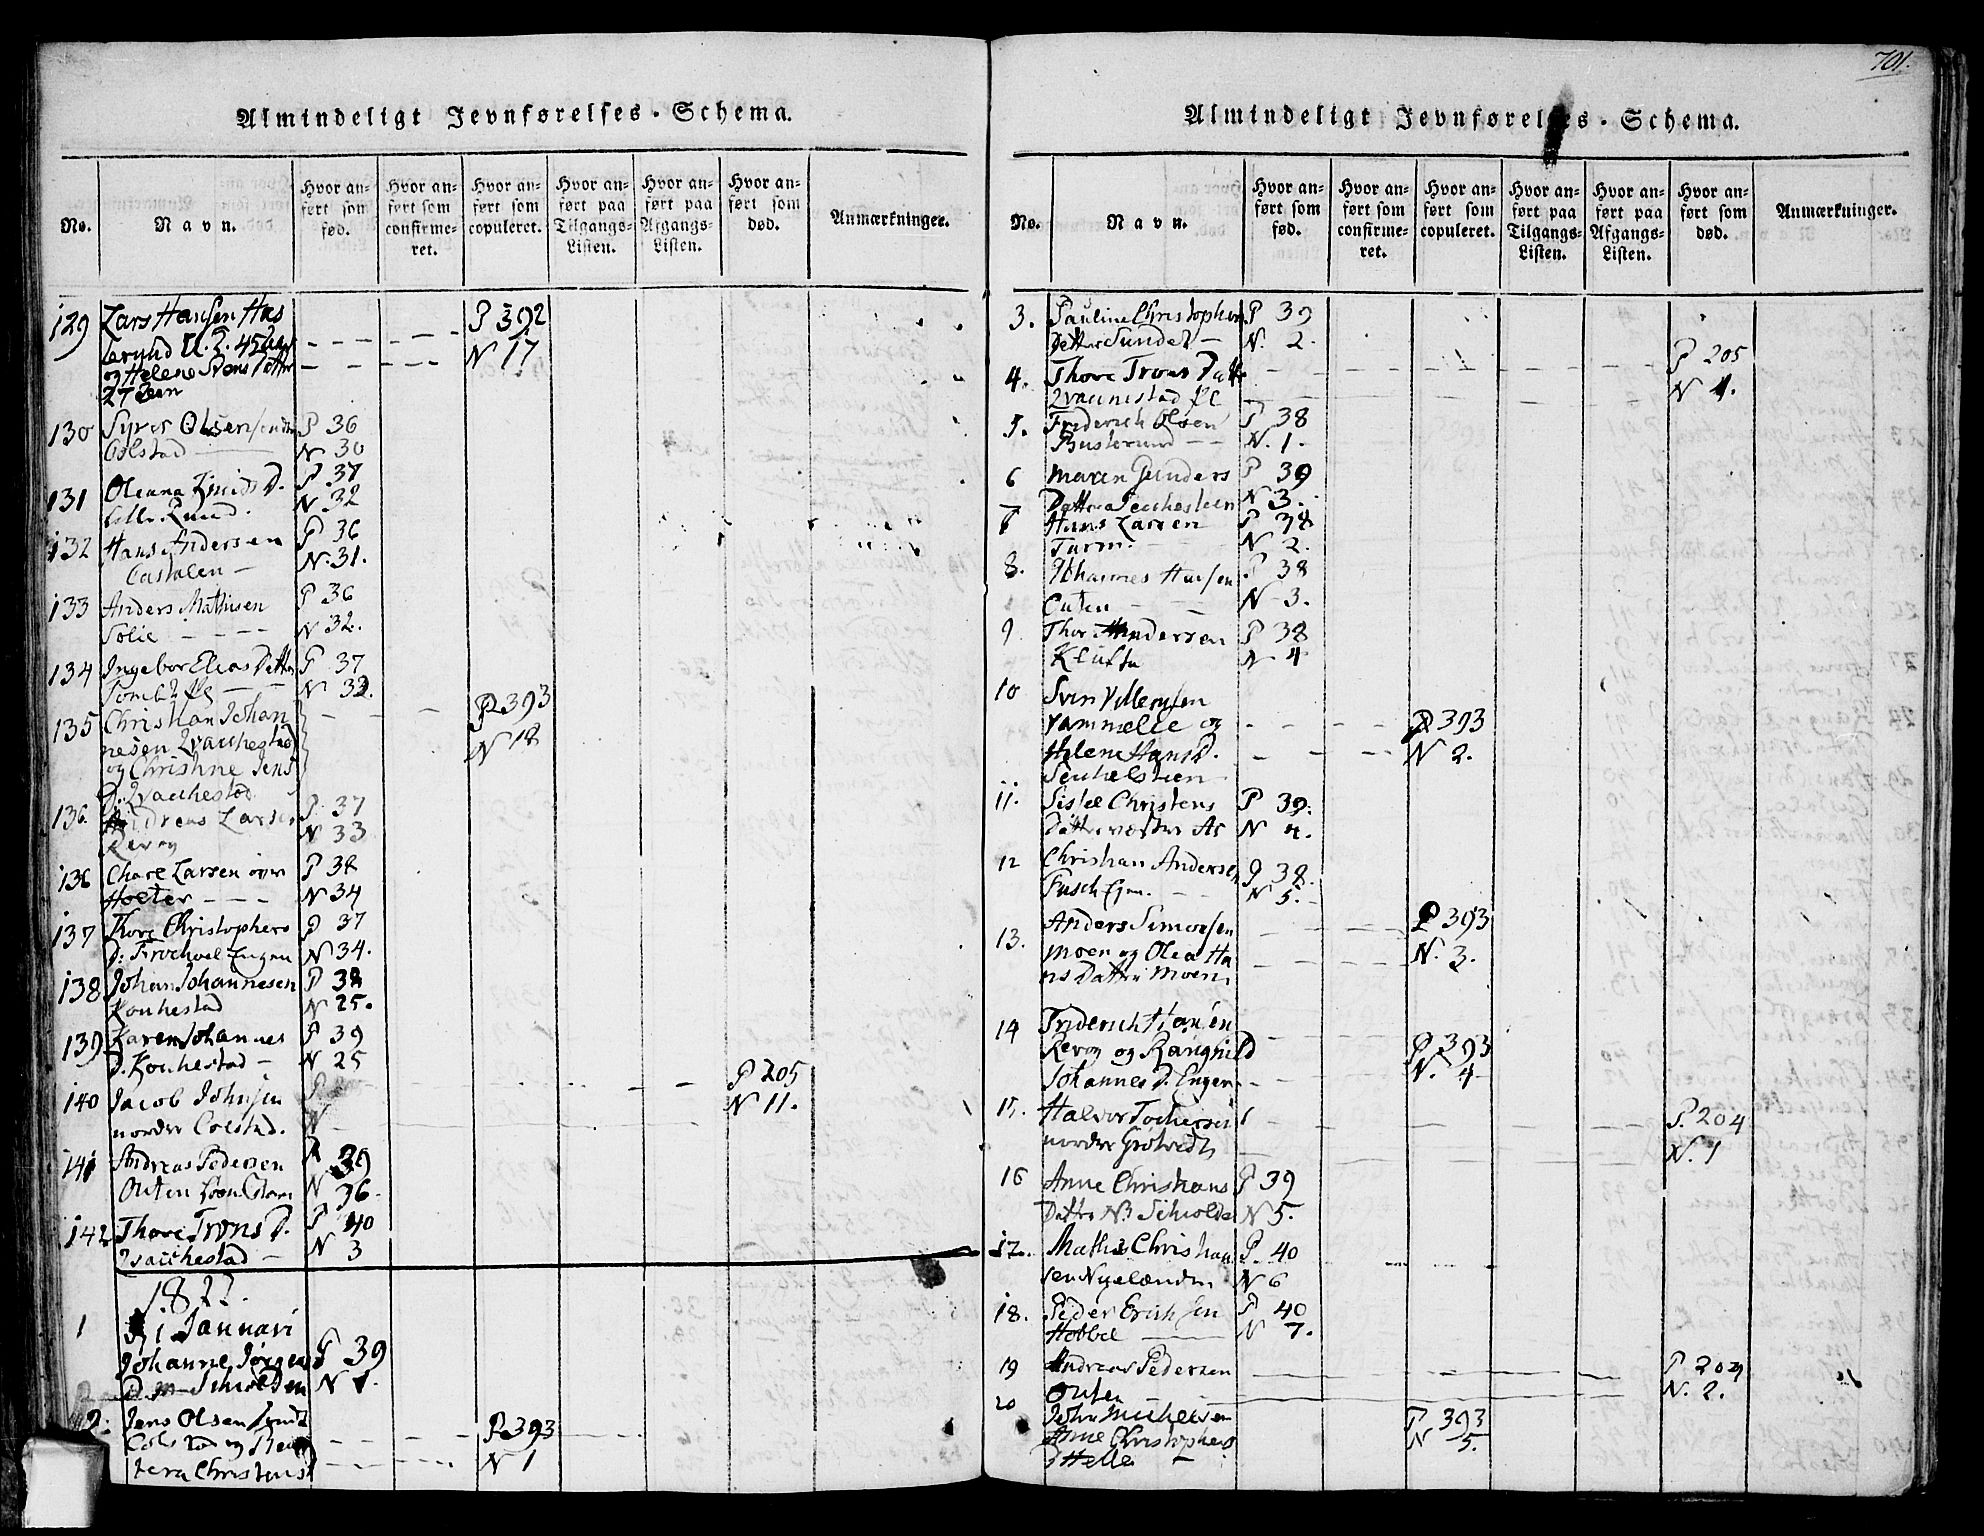 Almindeligt Jevnførelses-Schema.
No.
Navn.
Hvor an-
ført som
fød.
Hvor an-
ført som
confirme-
ret.
Hvor an-
ført som
copuleret.
Hvor an-
ført paa
Tilgangs-
Listen.
Hvor an-
ført paa
Afgangs-
Listen.
Hvor an-
ført som
død.
Anmærkninger.
129 Lars Hansen Has P 392
N 17
og Helene Svens Datter
27 Aar
130 Syver Olsen P 36
Colstad N 30
131 Oleana Knuds D. P 37
Lille Ruud. N 32
132 Hans Andersen P 36
Castalen N. 31.
133 Anders Mathisen P 36
Solie N 32.
134 Ingebor Elias Datter P 37
N 32.
135 Christian Johan P 393
nesen N 18
og Christine Jens
D.
136. Andreas Larsen P. 37
Revoy N 33
136 Larsen P 38
Holter N 34
137 Thore Christophers P 37
D: Engen N 34.
138 Johan Johannesen P 38
Kouhestad N 25.
139 Karen Johannes P 39
D. Kouhestad N 25
140 Jacob Johnsen P P 205
nordre Colstad. N N 11.
141 Andreas Pedersen P 39
Outen N 36.
142 Thore Trons D. P 40
N 3
1822.
1 D. 1 Januari
Johanne Jørgens P 39
D. N 1.
2. Jens Olsen P 393
Colstad og
Christens N 1
701.
Almindeligt Jevnførelses-Schema.
No.
Navn.
Hvor an-
ført som
fød.
Hvor an-
ført som
confirme-
ret.
Hvor an-
ført som
copuleret.
Hvor an-
ført paa
Tilgangs-
Listen.
Hvor an-
ført paa
Afgangs-
Listen.
Hvor an-
ført som
død.
Anmærkninger.
3. Pauline Christophers P 39
Datter Sundet N. 2.
4. Thore Trons Datter P 205
N 1.
5. Friderich Olsen P 38
Busterund N. 1.
6 Maren Gunders P 39
Datter N 3.
7 Hans Larsen P 38
Turm. N 2.
8. Johannes Hansen P 38
Outen N 3.
9 Thor Andersen P 38
Klufta N 4
10 Sven
Vammelie og P 393
Helene Hans D. N 2.
11. Sislee Christens P 39.
Datter væster As N 4.
12 Christian Andersen P 38.
N 5.
13. Anders Simonsen P 393
Moen og Olea Ha N. 3.
ns Datter Moen
14 Friderich Hansen
Revoy og Rangnild P 393
Johannes D. Engen N. 4
15. Halvor P. 204
nordre N. 1
16 Anne Christians P 39
Datter N. 5.
17. Mathis Christian P. 40
sen Nyelænden N 6
18. Peder Erichsen P 40
Hobbel N 7.
19 Andreas Pedersen P. 204
Outen N. 2.
20 John Michelsen P 393
Anne Christophers N 5.
D Helle